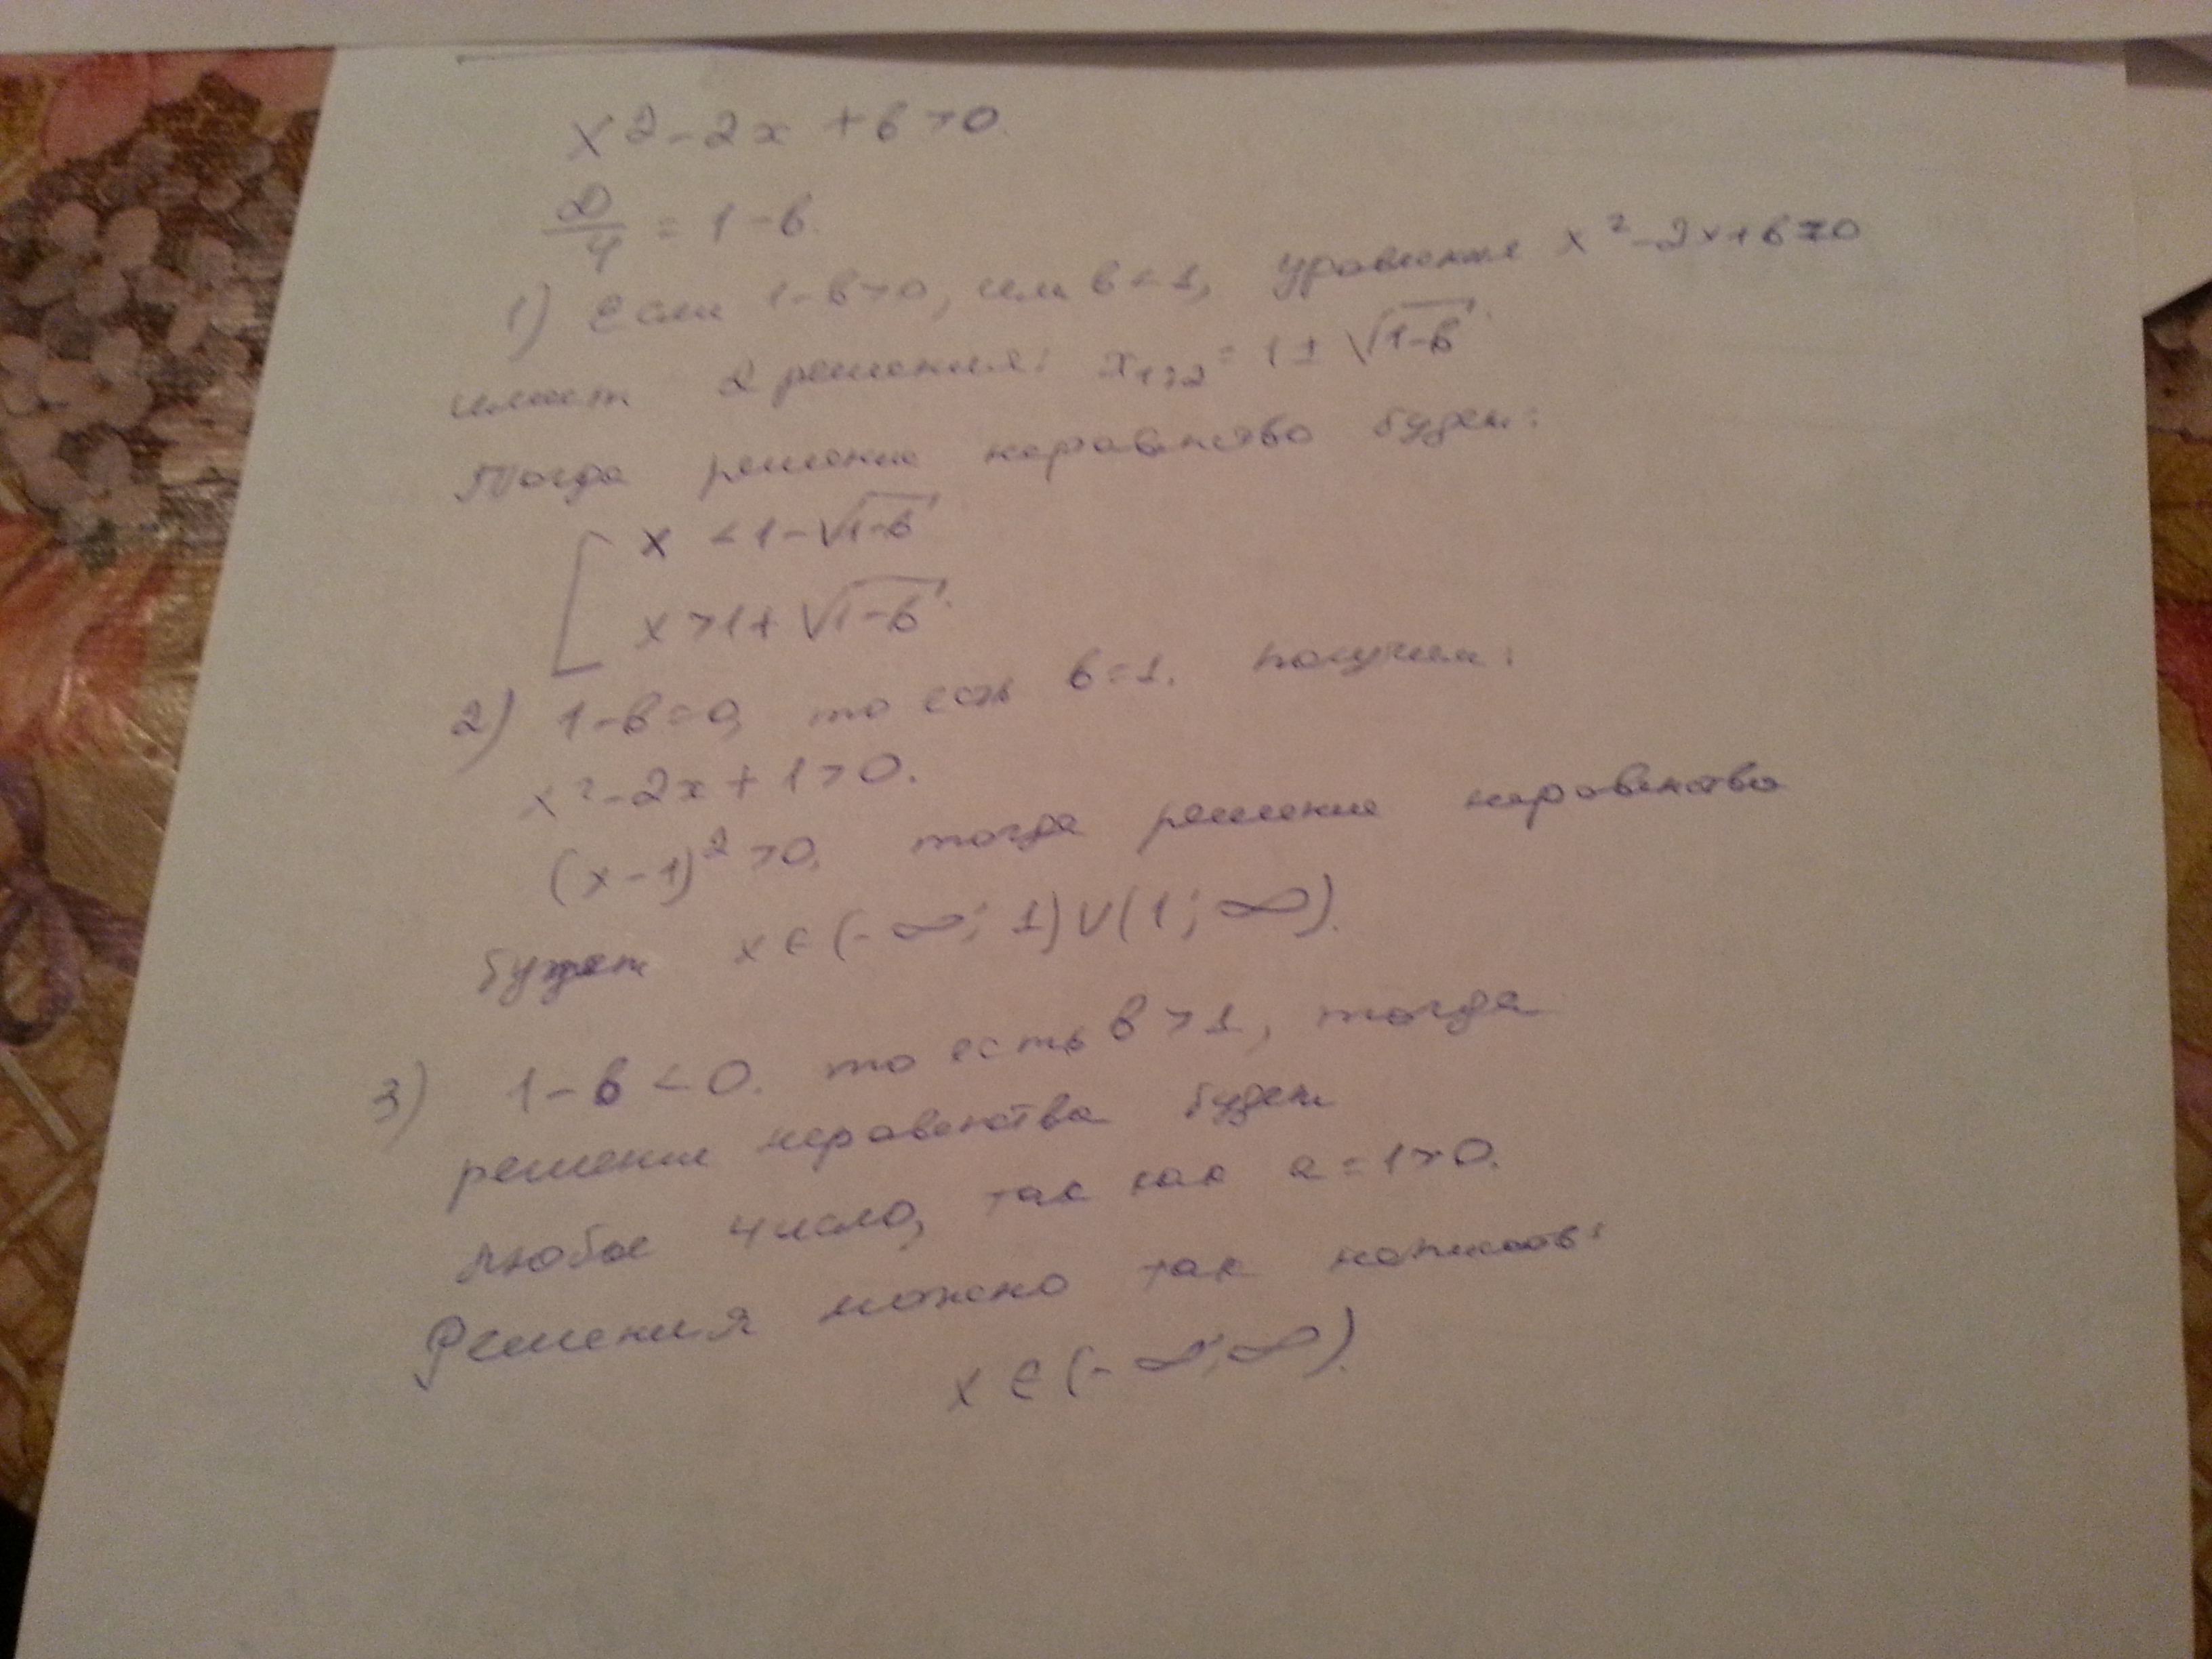 x² - 2x + в > 0.
D/4 = 1 - в.
1) Если 1-в>0, или в<1, уравнение x² - 2x + в = 0
имеет 2 решения: x₁,₂ = 1 ± √1-в.
Тогда решение неравенства будет:
[ x < 1 - √1-в
x > 1 + √1-в.
2) 1-в=0, то есть в=1. Получим:
x² - 2x + 1 > 0.
(x-1)² > 0, тогда решение неравенства
будет x ∈ (-∞; 1) ∪ (1; ∞).
3) 1 - в < 0. то есть в > 1, тогда
решение неравенства будет
любое число, так как a = 1 > 0.
Решения можно так написать:
x ∈ (-∞; ∞).